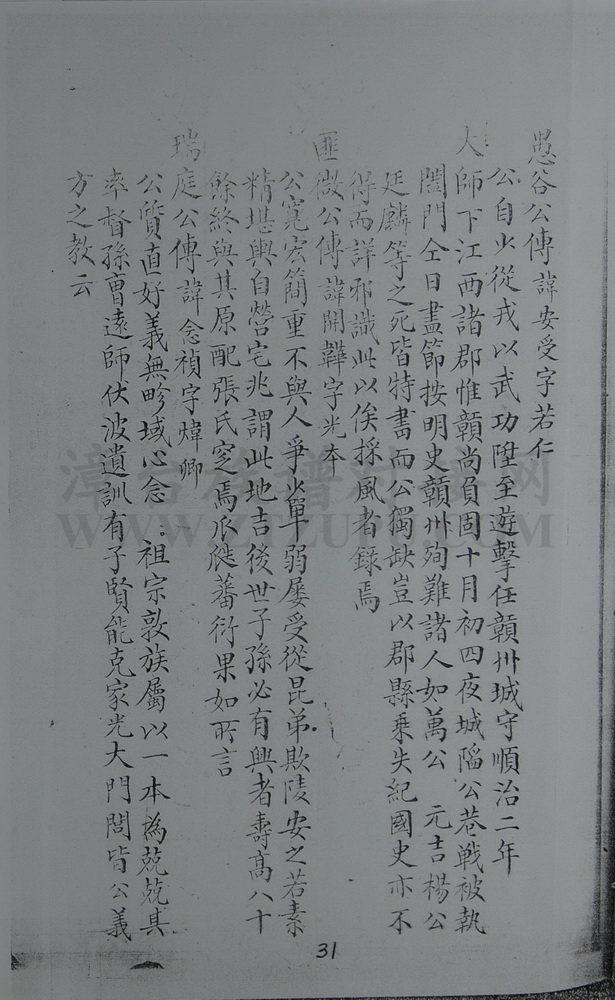 愚谷公傳 諱安受字若仁
公自少從戎以武功陞至遊擊任贛州城守順治二年
大師下江西諸郡惟贛尚負固十月初四夜城陷公巷戰被執
闔門仝日盡節按明史贛州殉難諸人如萬公 元吉楊公
廷麟等之死皆特書而公獨缺豈以郡縣乘失紀國史亦不
得而詳邪識此以俟採風者錄焉
匪微公傳諱開韡字光本
公寬宏簡重不與人爭少單弱屢受從昆弟欺陵安之若素
精堪輿自營宅兆謂此地吉後世子孫必有興者壽高八十
餘終與其原配張氏窆焉瓜瓞蕃衍果如所言
瑞庭公傳諱念禎字煒卿
公質直好義無畛域心念 祖宗敦族屬以一本為兢兢其
率督孫曹遠師伏波遺訓有子賢能克家光大門閭皆公義
方之教云
31
WWW.ZTZUPU.COM